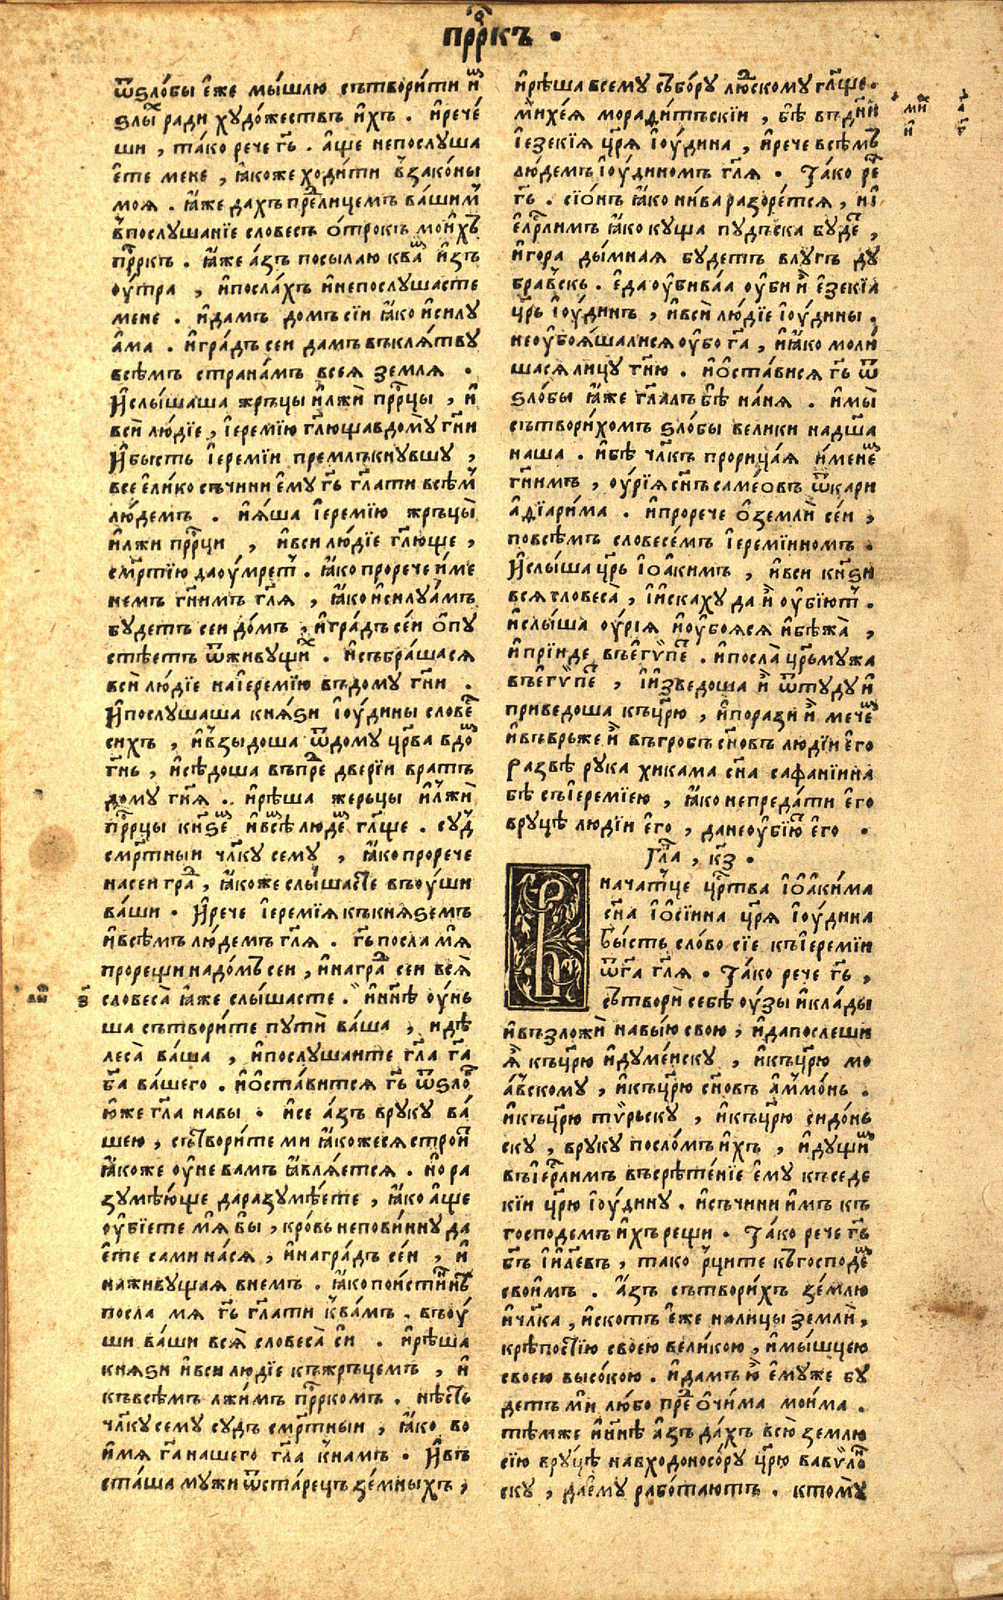 прⷪ҇ркъ ·
ѿѕло́бы є҆́же мы́шлю сътвори́ти и҆ⷨ
ѕлыⷯ ради худо́жествъ и҆́хъ . и҆рече́
ши , та́ко рече гь҃ . а҆́ще непослуша
є҆те мене , ꙗ҆́коже ходи́ти в҆законы
моѧ . ꙗ҆́же дахъ преⷣлицемъ ва́шиⷨ
в҆послушанїе словесъ ѻ҆трокъ мои́хъ
прⷪ҇ркъ . ꙗ҆́же а҆́зъ посылаю кваⷨ и҆зъ
оу҆́тра , и҆посла́хъ и҆непослушасте
мене . и҆дамъ домъ сїи ꙗ҆́ко и҆силу
а҆ма . и҆гра́дъ сеи дамъ въклѧ́тву
всѣ́мъ страна́мъ всеѧ землѧ .
И҆слы́шаша жръцы и҆лжи́ прⷪ҇рцы , и҆
вси́ лю́дїе , і҆еремїю гл҃юща в дому гн҃и
И҆бысть і҆еремїи премлъкнувшу ,
все є҆ли́ко съчини є҆му гь҃ гл҃ати всѣⷨ
лю́демъ . и҆ꙗ҆́ша і҆еремїю жръцы̀
и҆лжи прⷪ҇рци , и҆вси лю́дїе гл҃юще ,
смр҃тїю да оу҆мреⷮ . ꙗ҆́ко прорече и҆́ме
немъ гн҃имъ гл҃ѧ , ꙗ҆́ко и҆силуа́мъ
будетъ сеи до́мъ , и҆гра́дъ се́и ѻ҆пу
стѣетъ ѿживущиⷯ . и҆събра́шасѧ
вси́ лю́дїе на і҆еремїю въдому гн҃и .
И҆послушаша кнѧ́ѕи і҆оу́дины словеⷭ
сихъ , и҆взыдоша ѿдому цр҃ва вдоⷨ
гн҃ь , и҆сѣ́доша въпреⷣ двери́и вратъ
дому гн҃ѧ . и҆рѣ́ша жерьцы и҆лжи́
прⷪ҇рцы кнѕ҃еⷨ и҆всѣ́ⷨ людеⷨ гл҃ще . суⷣ
смр҃тныи чл҃ку сему , ꙗ҆́ко прорече
насеи граⷣ , ꙗ҆́коже слы́шасте въоу́ши
ва́ши . И҆рече і҆еремїѧ къкнѧѕемъ
и҆всѣ́мъ лю́демъ гл҃ѧ . гь҃ посла мѧ̀
прорещи надо́мъ сеи , и҆награⷣ сеи всѧ̀
словеса̀ ꙗ҆́же слы́шасте . и҆нн҃ѣ оу҆нь
ша сътвори́те путѝ ва́ша , и дѣ
леса̀ ва́ша , и҆послушаите гл҃а га҃
ба҃ ва́шего . и҆ѻ҆ста́витсѧ гь҃ ѿѕлоⷠ
ю҆же гл҃а навы . и҆се а҆́зъ вруку ва́
шею , сътвори́те ми ꙗ҆́кожесѧ строи̑
ꙗ҆́коже оу҆не вамъ ꙗ҆влѧ́етсѧ . но ра
зумѣ́юще да разумѣ́ете , ꙗ҆́ко а҆ще
оу҆бїе́те мѧ̀ вы̀ , кро́вь непови́нну да
є҆́те сами на́сѧ , и҆награ́дъ се́и , и҆
наживущаѧ внемъ . ꙗ҆́ко пои́стиннѣ
посла мѧ гь҃ гл҃ати к҆ва́мъ . въоу́
ши ва́ши всѧ̀ словеса̀ сїи . и҆рѣ́ша
кнѧѕи и҆вси людїе къжръцемъ , и҆
къвсѣ́мъ лжи́мъ прⷪ҇ркомъ . нѣ́сть
чл҃ку сему судъ смр҃тныи , ꙗ҆́ко во
и҆́мѧ га҃ нашего гл҃а к҆намъ . И҆въ
ста́ша мужи ѿста́рецъ зе́мныхъ ,
и҆рѣ́ша всему събо́ру люⷣскому гл҃ще .
михе́ѧ морадитъскїи , бѣ̀ въдни̑
і҆езекїѧ цр҃ѧ і҆оу́дина , и҆рече всѣ́мъ
лю́демъ і҆оу́диномъ гл҃ѧ . Та́ко реⷱ
гь҃ . сїѻнъ ꙗ҆́ко ни́ва разоре́тсѧ , и҆ і҆
є҆рⷭ҇лимъ ꙗ҆́ко куща пудъска будеⷮ ,
и҆гора ды́мнаѧ будетъ влугъ ду
бра́вскъ . є҆да оу҆бива́ѧ оу҆би и҆̀ є҆зекїа
цр҃ь і҆оу́динъ , и҆вси́ лю́дїе і҆оу́дины .
не оу҆боꙗ́шалисѧ оу҆бо га҃ , и҆ꙗ҆́ко моли
шасѧ лицу гн҃ю . и҆ѻ҆ста́висѧ гь҃ ѿ
ѕло́бы ꙗ҆́же гл҃алъ бѣ̀ на́нѧ . и҆мы̀
сътвори́хомъ ѕло́бы велики надш҃а
наша . и҆бѣ̀ чл҃къ прорица́ѧ и҆менеⷨ
гн҃имъ , оу҆рїѧ сн҃ъ саме́ѻвъ ѿкари
а҆дїари́ма . и҆прорече ѻ҆землѝ се́и ,
повсѣ́мъ словесе́мъ і҆еремїинномъ .
И҆слы́ша цр҃ь і҆ѻ҆акимъ , и҆вси кн҃ѕи
всѧ тловеса̀ , і҆и҆ска́ху да и҆̀ оу҆бїюⷮ .
и҆слы́ша оу҆рїѧ и҆оу҆боѧсѧ и҆бѣжа̀ ,
и҆прїиде въе҆гѵ́пеⷮ . и҆посла̀ цр҃ь мужа
въе҆гѵ́пеⷮ , і҆и҆зведоша и҆̀ ѿтуду и҆
приведоша къцр҃ю , и҆порази и҆̀ мечеⷨ
и҆въвръже и҆̀ въгробъ сн҃овъ людїи е҆го
развѣ рука хикама сн҃а сафанїина
бѣ̀ съі҆еремїею , ꙗ҆́ко непреда́ти є҆го
вруцѣ людїи є҆го , да неоу҆бїю̑ є҆го .
Гл҃а , к҃з .
В
начатце црⷭ҇тва і҆ѻ҆аки́ма
сн҃а і҆ѻ҆сїина цр҃ѧ і҆оу́дина
бы́сть сло́во сїе къі҆еремїи
ѿга҃ гл҃ѧ . Та́ко рече гь҃ ,
сътворѝ себѣ̀ оу́зы и҆кла́ды
и҆възложѝ навы́ю свою , и҆да послеши
ѧ҆̀ къцр҃ю и҆думе́иску , и҆къцр҃ю мо
а́вскому , и҆къцр҃ю сн҃овъ а҆ммо́нь .
и҆къцр҃ю ти́рьску , и҆къцр҃ю сидо́нь
ску , вруку посло́мъ и҆́хъ , и҆дущиⷨ
въі҆ерⷭ҇лимъ въсрѣте́нїе є҆му къседе
кїи цр҃ю і҆оу́дину . и҆съчини и҆́мъ къ
господемъ и҆́хъ рещи . Та́ко рече гь҃
бъ҃ і҆и҃левъ , тако рците къгосподеⷨ
свои́мъ . А҆́зъ сътвори́хъ зе́млю
и҆чл҃ка , и҆скотъ є҆же налицы землѝ ,
крѣпостїю своею вели́кою , и҆мы́шцею
своею высо́кою . и҆дамъ ю҆̀ є҆муже бу
детъ ми̑ лю́бо преⷣ ѻ҆чи́ма мои́ма .
тѣ́мже и҆нн҃ѣ а҆́зъ да́хъ всю̀ землю
сїю вруцѣ̀ навходоносо́ру цр҃ю вавѵлоⷩ
ску , да є҆му рабо́таютъ . ктому̀